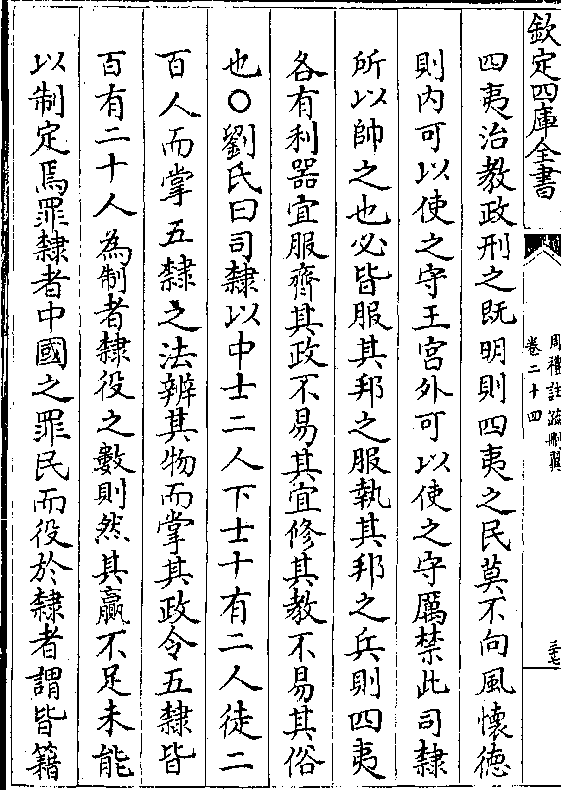 欽定四庫全書
周禮註疏刪翼
卷二十四
三七
四夷治教政刑之既明則四夷之民莫不向風懷德
則内可以使之守王宮外可以使之守厲禁此司隸
所以帥之也必皆服其邦之服執其邦之兵則四夷
各有利器宜服齊其政不易其宜修其教不易其俗
也○劉氏曰司隸以中士二人下士十有二人徒二
百人而掌五隸之法辨其物而掌其政令五隸皆
百有二十人為制者隸役之數則然其贏不足未能
以制定焉罪隸者中國之罪民而役於隸者謂皆籍